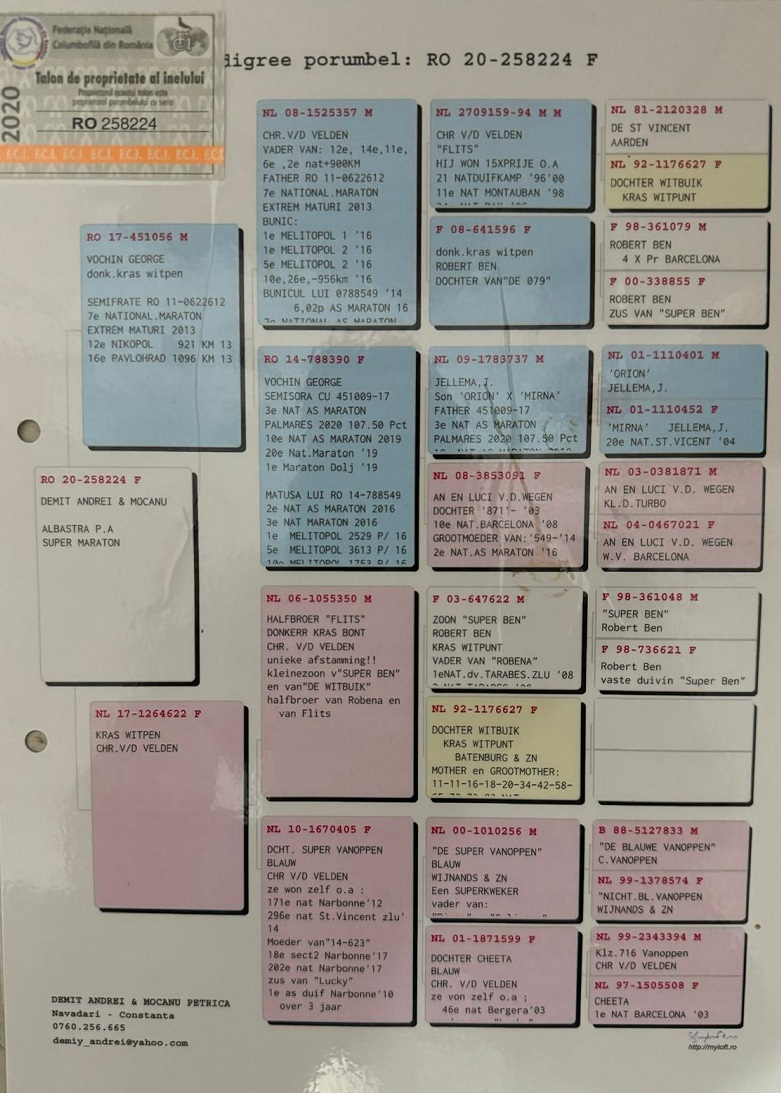 Federația Națională
Columbofilă din România
Talon de proprietate al inelului
Proprietarul acestui talon este
proprietarul porumbelului cu seria
2020
RO 258224
EC.I. EC.I. EC.I. EC.I. EC.I. EC.I. EC.I
digree porumbel: RO 20-258224 F
RO 20-258224 F
DEMIT ANDREI & MOCANU
ALBASTRA P.A
SUPER MARATON
RO 17-451056 M
VOCHIN GEORGE
donk.kras witpen
SEMIFRATE RO 11-0622612
7e NATIONAL.MARATON
EXTREM MATURI 2013
12e NIKOPOL 921 KM 13
16e PAVLOHRAD 1096 KM 13
NL 17-1264622 F
KRAS WITPEN
CHR.V/D VELDEN
NL 08-1525357 M
CHR.V/D VELDEN
VADER VAN: 12e, 14e,11e,
6e ,2e nat+900KM
FATHER RO 11-0622612
7e NATIONAL.MARATON
EXTREM MATURI 2013
BUNIC:
1e MELITOPOL 1 '16
1e MELITOPOL 2 '16
5e MELITOPOL 2 '16
10e,26e,-956km '16
BUNICUL LUI 0788549 '14
6,02p AS MARATON 16
RO 14-788390 F
VOCHIN GEORGE
SEMISORA CU 451009-17
3e NAT AS MARATON
PALMARES 2020 107.50 Pct
10e NAT AS MARATON 2019
20e Nat.Maraton '19
1e Maraton Dolj '19
MATUSA LUI RO 14-788549
2e NAT AS MARATON 2016
3e NAT MARATON 2016
1e MELITOPOL 2529 P/ 16
5e MELITOPOL 3613 P/ 16
NL 06-1055350 M
HALFBROER "FLITS"
DONKERR KRAS BONT
CHR. V/D VELDEN
unieke afstamming!!
kleinezoon v"SUPER BEN"
en van"DE WITBUIK"
halfbroer van Robena en
van Flits
NL 10-1670405 F
DCHT. SUPER VANOPPEN
BLAUW
CHR V/D VELDEN
ze won zelf o.a :
171e nat Narbonne'12
296e nat St.Vincent zlu'
14
Moeder van"14-623"
18e sect2 Narbonne'17
202e nat Narbonne'17
zus van "Lucky"
1e as duif Narbonne'10
over 3 jaar
NL 2709159-94 M M
CHR V/D VELDEN
"FLITS"
HIJ WON 15XPRIJE O.A
21 NATDUIFKAMP '96'00
11e NAT MONTAUBAN '98
F 08-641596 F
donk.kras witpen
ROBERT BEN
DOCHTER VAN"DE 079"
NL 09-1783737 M
JELLEMA,J.
Son 'ORION' X 'MIRNA'
FATHER 451009-17
3e NAT AS MARATON
PALMARES 2020 107.50 Pct
NL 08-3853091 F
AN EN LUCI V.D.WEGEN
DOCHTER '8711- '03
10e NAT.BARCELONA '08
GROOTMOEDER VAN:'549-'14
2e NAT.AS MARATON '16
F 03-647622 M
ZOON "SUPER BEN"
ROBERT BEN
KRAS WITPUNT
VADER VAN "ROBENA"
1eNAT.dv.TARABES.ZLU '08
NL 92-1176627 F
DOCHTER WITBUIK
KRAS WITPUNT
BATENBURG & ZN
MOTHER en GROOTMOTHER:
11-11-16-18-20-34-42-58-
NL 00-1010256 M
"DE SUPER VANOPPEN"
BLAUW
WIJNANDS & ZN
Een SUPERKWEKER
vader van:
NL 01-1871599 F
DOCHTER CHEETA
BLAUW
CHR. V/D VELDEN
ze von zelf o.a ;
46e nat Bergera'03
NL 81-2120328 M
DE ST VINCENT
AARDEN
NL 92-1176627 F
DOCHTER WITBUIK
KRAS WITPUNT
F 98-361079 M
ROBERT BEN
4 X Pr BARCELONA
F 00-338855 F
ROBERT BEN
ZUS VAN "SUPER BEN"
NL 01-1110401 M
'ORION'
JELLEMA,J.
NL 01-1110452 F
'MIRNA' JELLEMA,J.
20e NAT.ST.VICENT '04
NL 03-0381871 M
AN EN LUCI V.D. WEGEN
KL.D.TURBO
NL 04-0467021 F
AN EN LUCI V.D. WEGEN
W.V. BARCELONA
F 98-361048 M
"SUPER BEN"
Robert Ben
F 98-736621 F
Robert Ben
vaste duivin "Super Ben"
B 88-5127833 M
"DE BLAUWE VANOPPEN"
C.VANOPPEN
NL 99-1378574 F
"NICHT.BL.VANOPPEN
WIJNANDS & ZN
NL 99-2343394 M
Klz.716 Vanoppen
CHR V/D VELDEN
NL 97-1505508 F
CHEETA
1e NAT BARCELONA '03
DEMIT ANDREI & MOCANU PETRICA
Navadari - Constanta
0760.256.665
demiy_andrei@yahoo.com
http://myloft.ro